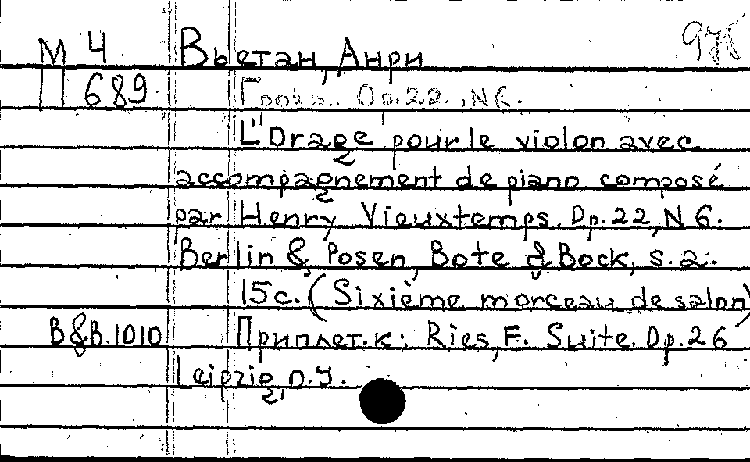 М 4 Вьетан, Анри
П 689. Гроза. Op.22., N6.
L'Orage pour le violon avec
accompagnement de piano composé
par Henry Vieuxtemps. Op.22, N 6.
Berlin & Posen, Bote & Bock, s.a.
15c. (Sixième morceau de salon)
B&B.1010 Приплет. к: Ries, F. Suite. Op.26
Leipzig,